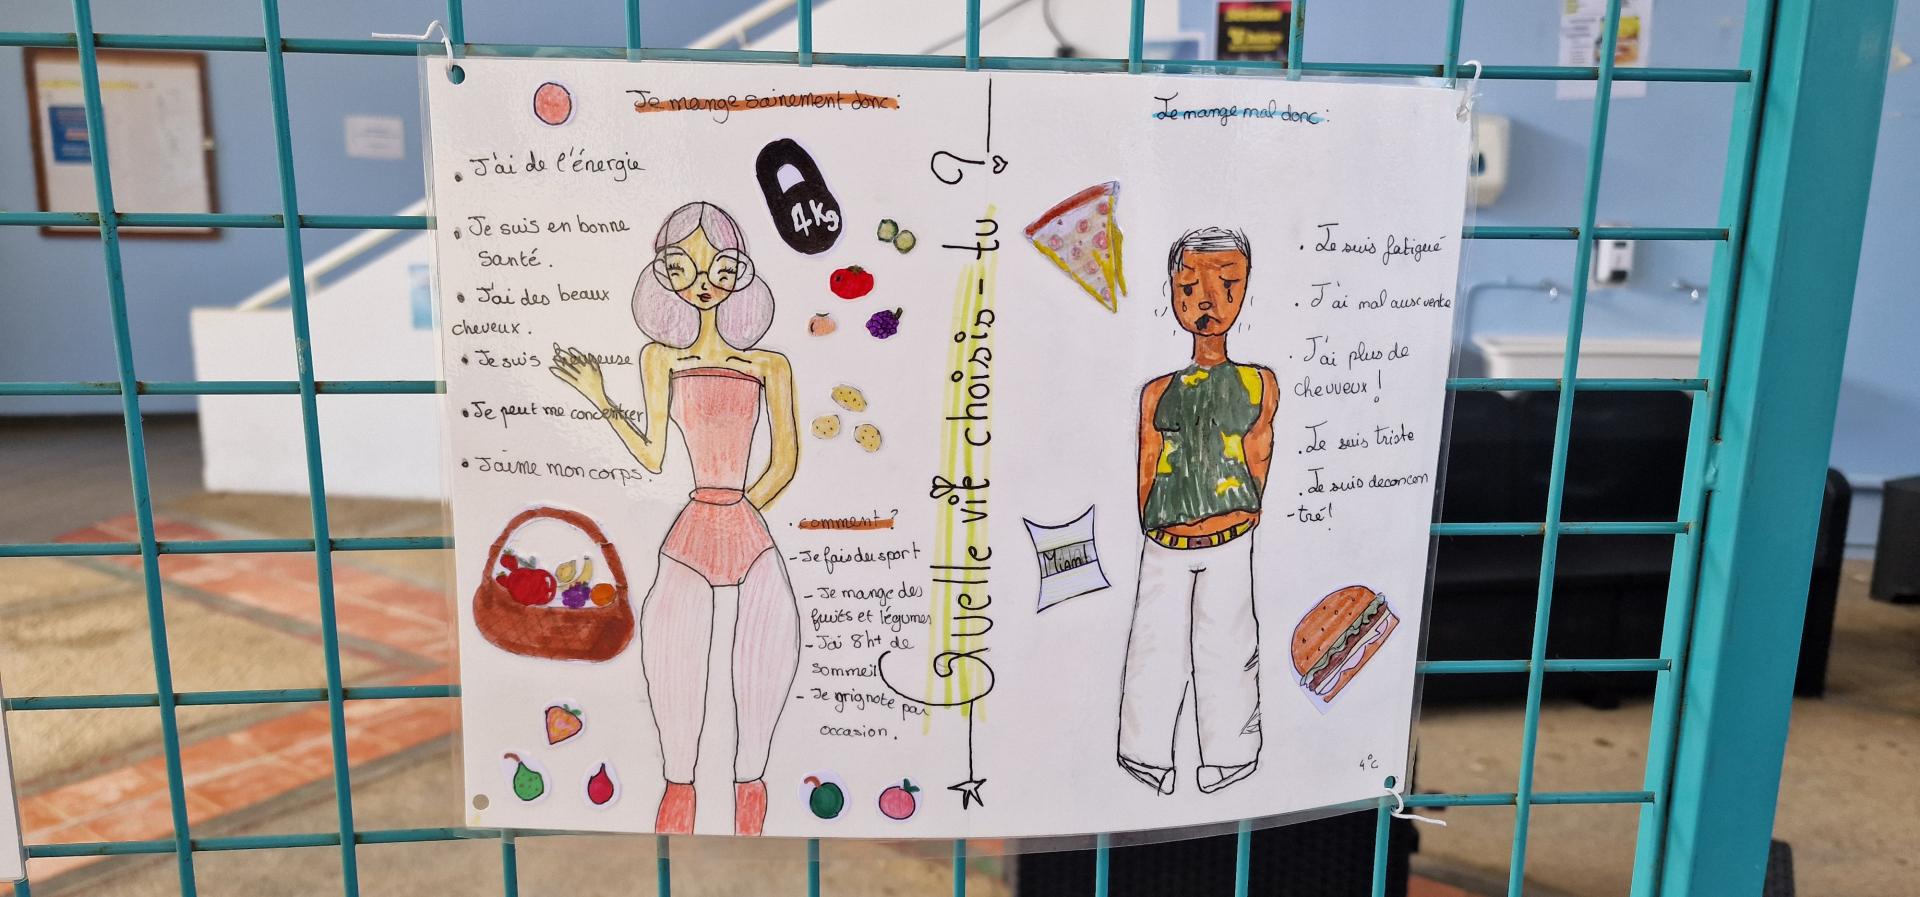 Je mange sainement donc :
• J'ai de l'énergie
• Je suis en bonne
Santé.
• J'ai des beaux
cheveux.
• Je suis heureuse
• Je peut me concentrer
• J'aime mon corps.
4Kg
. comment ?
- Je fais du sport
- Je mange des
fruits et légumes
- J'ai 8h+ de
sommeil
- Je grignote par
occasion.
Quelle vie choisis-tu ?
Je mange mal donc :
. Je suis fatigué
. J'ai mal aux vente
. J'ai plus de
cheuveux !
. Je suis triste
. Je suis deconcen
-tré !
Miam!
4°C